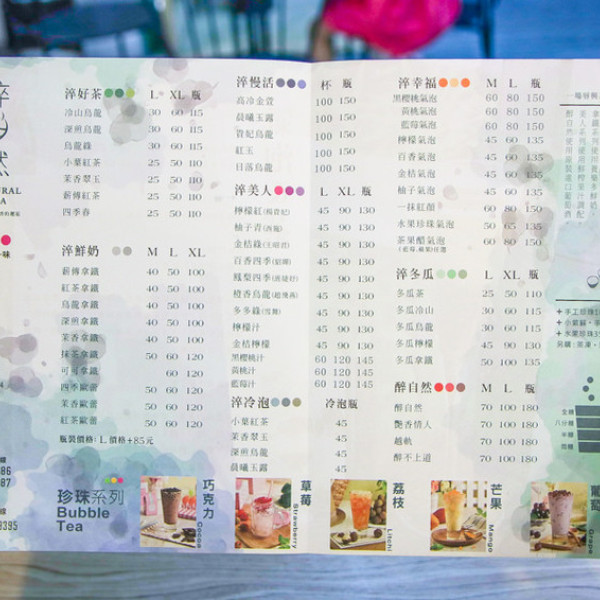 淬好茶 L XL 瓶
冷山烏龍 30 60 115
深煎烏龍 30 60 115
烏龍綠 30 60 115
小葉紅茶 25 50 110
茉香翠玉 25 50 110
薪傳紅茶 25 50 110
四季春 25 50 110
淬鮮奶 M L XL
薪傳拿鐵 40 50 100
紅茶拿鐵 40 50 100
烏龍拿鐵 40 50 100
深煎拿鐵 40 50 100
茉香拿鐵 40 50 100
抹茶拿鐵 50 60 120
可可拿鐵 60 120
四季歐蕾 50 60 120
茉香歐蕾 50 60 120
紅茶歐蕾 50 60 120
瓶裝價格：L 價格+85元
淬慢活 杯 瓶
高冷金萱 100 150
晨曦玉露 100 150
貴妃烏龍 100 150
紅玉 100 150
日落烏龍 100 150
淬美人 L XL 瓶
檸檬紅(楊貴妃) 45 90 130
柚子青(西施) 45 90 130
金桔綠(王昭君) 45 90 130
百香四季(貂蟬) 45 90 130
鳳梨四季 45 90 130
橙香烏龍(趙飛燕) 45 90 130
多多綠 45 90 130
檸檬汁 45 90 130
金桔檸檬 45 90 130
黑櫻桃汁 60 120 145
黃桃汁 60 120 145
藍莓汁 60 120 145
淬冷泡 冷泡瓶
小葉紅茶 45
茉香翠玉 45
深煎烏龍 45
晨曦玉露 45
淬幸福 M L 瓶
黑櫻桃氣泡 60 80 150
黃桃氣泡 60 80 150
藍莓氣泡 60 80 150
檸檬氣泡 45 60 135
百香氣泡 45 60 135
金桔氣泡 45 60 135
柚子氣泡 45 60 135
一抹紅顏 60 80 150
水果珍珠氣泡 50 65 135
茶果醋氣泡 60 80 150
淬冬瓜 L XL 瓶
冬瓜茶 25 50 110
冬瓜冷山 30 60 115
冬瓜烏龍 30 60 115
冬瓜檸檬 45 90 130
冬瓜拿鐵 50 100 135
醉自然 M L 瓶
醉自然 70 100 180
艷香情人 70 100 180
越軌 70 100 180
醉不上道 70 100 180
珍珠系列
Bubble
Tea
巧克力
Cocoa
草莓
Strawberry
荔枝
Litchi
芒果
Mango
葡萄
Grape